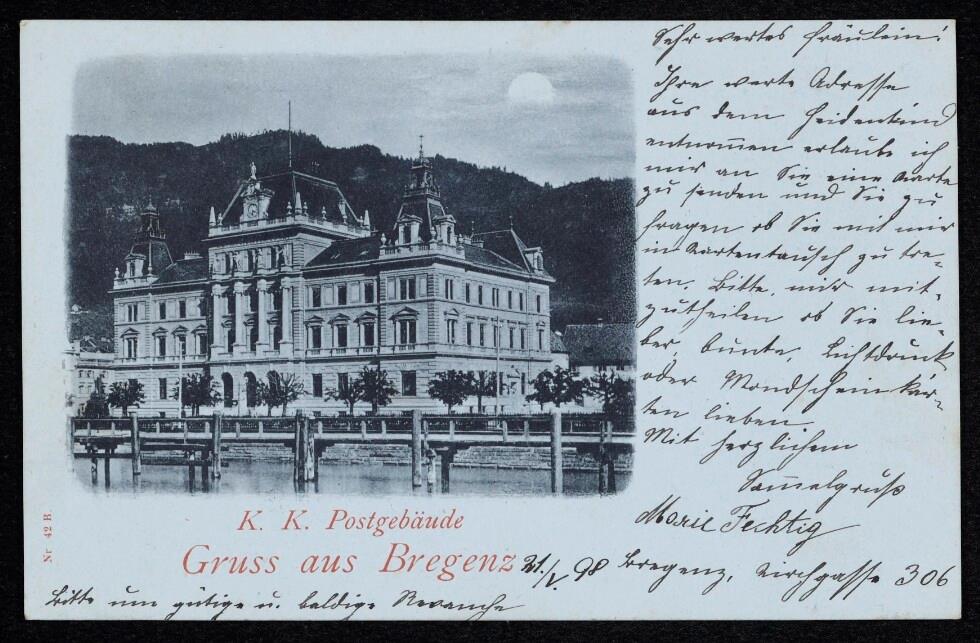 Sehr wertes Fräulein!
Ihre werte Adresse
aus dem Heidenkind
entnommen erlaube ich
mir an Sie eine Karte
zu senden und Sie zu
fragen ob Sie mit mir
in Kartentausch zu tre-
ten. Bitte, mir mit-
zutheilen ob Sie lie-
ber, bunte, Lichtdruck
oder Mondscheinkar-
ten lieben.
Mit herzlichem
Sammelgruß
Marie Fechtig
Bregenz, Kirchgasse 306
K. K. Postgebäude
Gruss aus Bregenz
21./V 98
Nr 42 B.
Bitte um gütige u. baldige Revanche